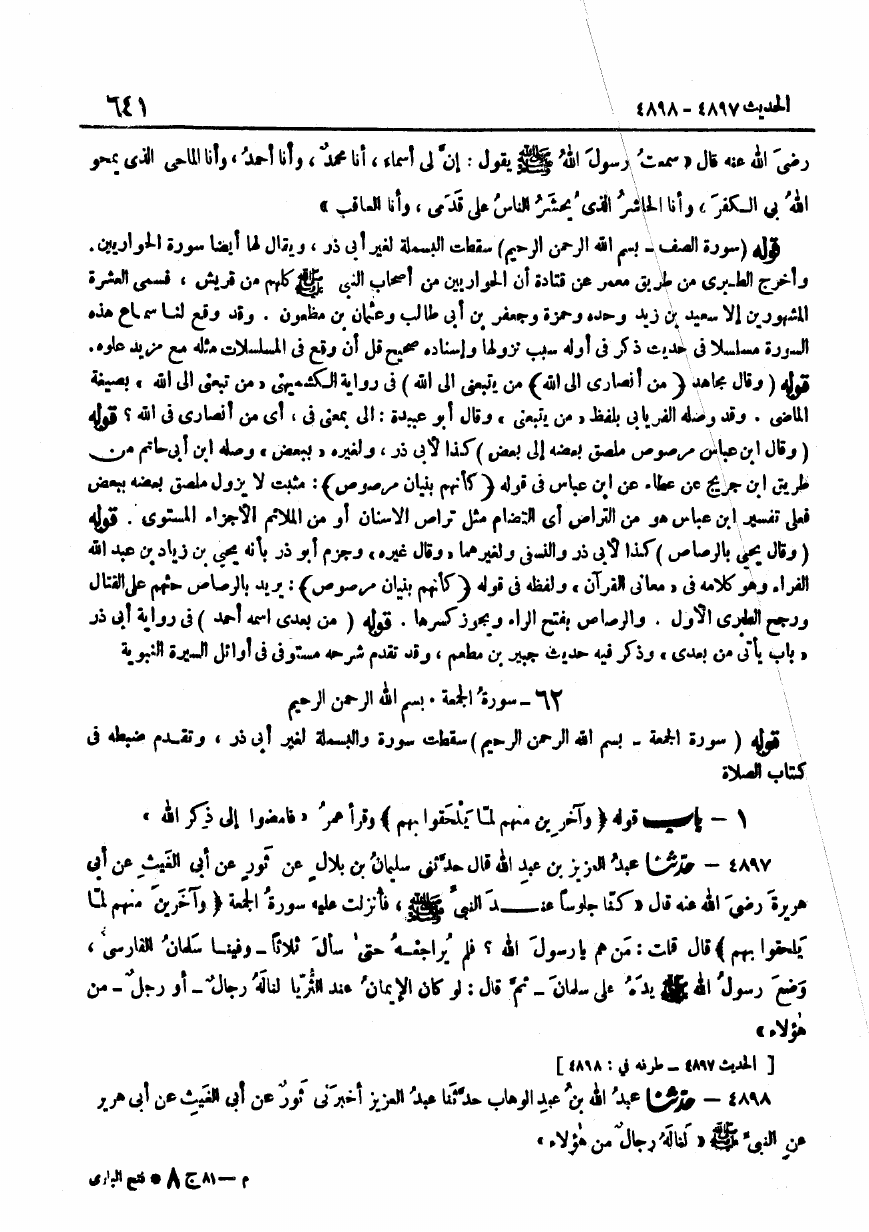 الحديث ٤٨٩٧ - ٤٨٩٨ ٦٤١
رضىَ الله عنه قال « سمعتُ رسولَ اللهُ ﷺ يقول : إنَّ لى أسماء ، أنا محمدٌ ، وأنا أحمدُ ، وأنا الماحى الذى يمحو
اللهُ بى الـكفرَ ، وأنا الحاشرُ الذى يُحشَرُ الناسُ على قَدَمى ، وأنا العاقب »
قوله (سورة الصف ـ بسم الله الرحمن الرحيم) سقطت البسملة لغير أبى ذر ، ويقال لها أيضا سورة الحواريين .
وأخرج الطبرى من طريق معمر عن قتادة أن الحواريين من أصحاب النبى ﷺ كلهم من قريش ، فسمى العشرة
المشهورين إلا سعيد بن زيد وحده وحمزة وجعفر بن أبى طالب وعثمان بن مظعون . وقد وقع لنـا سمـاع هذه
السورة مسلسلا فى حديث ذكر فى أوله سبب نزولها وإسناده صحيح قل أن وقع فى المسلسلات مثله مع مزيد علوه .
قوله ( وقال مجاهد ( من أنصارى الى الله ) من يتبعنى الى الله ) فى رواية الكشميهنى « من تبعنى الى الله » بصيغة
الماضى . وقد وصله الفريابى بلفظ « من يتبعنى » وقال أبو عبيدة : الى بمعنى فى ، أى من أنصارى فى الله ؟ قوله
( وقال ابن عباس مرصوص ملصق بعضه إلى بعض ) كذا لأبى ذر ، ولغيره « ببعض » وصله ابن أبى حاتم من
طريق ابن جريج عن عطاء عن ابن عباس فى قوله ( كأنهم بنيان مرصوص ) : مثبت لا يزول ملصق بعضه ببعض
فعلى تفسير ابن عباس هو من التراص أى التضام مثل تراص الاسنان أو من الملائم الأجزاء المستوى . قوله
( وقال يحيى بالرصاص ) كذا لأبى ذر والنسفى ولغيرهما « وقال غيره » وجزم أبو ذر بأنه يحيى بن زياد بن عبد الله
الفراء وهو كلامه فى « معانى القرآن » ولفظه فى قوله ( كأنهم بنيان مرصوص ) : يريد بالرصاص حثهم على القتال
ورجح الطبرى الأول . والرصاص بفتح الراء ويجوز كسرها . قوله ( من بعدى اسمه أحمد ) فى رواية أبى ذر
« باب يأتى من بعدى » وذكر فيه حديث جبير بن مطعم ، وقد تقدم شرحه مستوفى فى أوائل السيرة النبوية
٦٢ ـ سورةُ الجمعة . بسم الله الرحمن الرحيم
قوله ( سورة الجمعة ـ بسم الله الرحمن الرحيم ) سقطت سورة والبسملة لغير أبى ذر ، وتقـدم ضبطه فى
كتاب الصلاة
١ ـ باب قوله ( وآخرين منهم لمّا يَلْحَقوا بهم ) وقرأ عمرُ « فامضوا إلى ذِكر الله »
٤٨٩٧ ـ حدّثنا عبدُ العزيز بن عبدِ الله قال حدَّثنى سليمانُ بن بلالٍ عن ثَورٍ عن أبى الغَيثِ عن أبى
هريرةَ رضىَ الله عنه قال « كنّا جلوساً عنـــدَ النبىِّ ﷺ ، فأنزِلت عليه سورةُ الجمعة ( وآخَرينَ منهم لمّا
يَلحقوا بهم ) قال قلت : مَن هم يا رسولَ الله ؟ فلم يُراجعْـهُ حتىٰ سألَ ثلاثاً ـ وفينـا سَلمانُ الفارسىُّ ،
وَضعَ رسولُ الله ﷺ يدَهُ على سلمانَ ـ ثمَّ قال : لو كان الإيمانُ عند الثُّريا لنالَهُ رجالٌ ـ أو رجلٌ ـ من
هٰؤلاء »
[ الحديث ٤٨٩٧ ـ طرفه فى : ٤٨٩٨ ]
٤٨٩٨ ـ حدّثنا عبدُ الله بنُ عبدِ الوهاب حدَّثَنا عبدُ العزيز أخبرَنى ثَورٌ عن أبى الغَيثِ عن أبى هرير
عنِ النبىِّ ﷺ « لَنالَهُ رجالٌ من هٰؤلاء »
م ـ ٨١ ج ٨ * فتح البارى